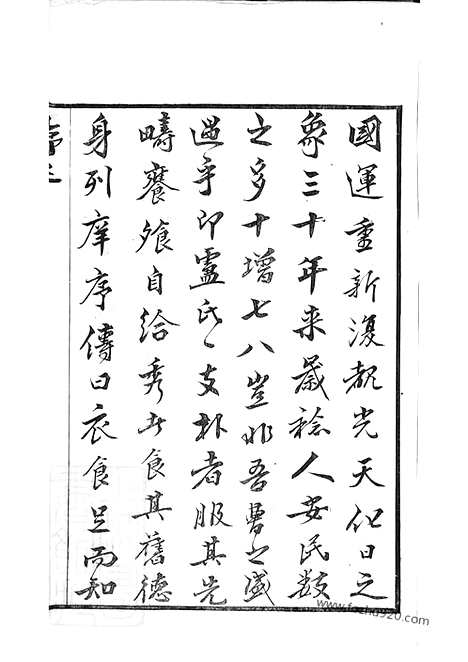 國運重新復覩光天化日之
象三十年来歲稔人安民數
之多十增七八豈非吾曹之盛
遇乎即盧氏一支朴者服其先
疇饔飧自給秀者食其舊德
身列庠序傳曰衣食足而知
www.fozhu920.com